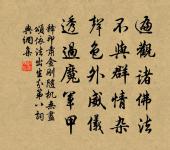 遍觀諸佛法
不與群情雜
聲色外威儀
透過魔軍甲
釋印肅金剛隨機無盡
頌依法出生分第八詞
典網集